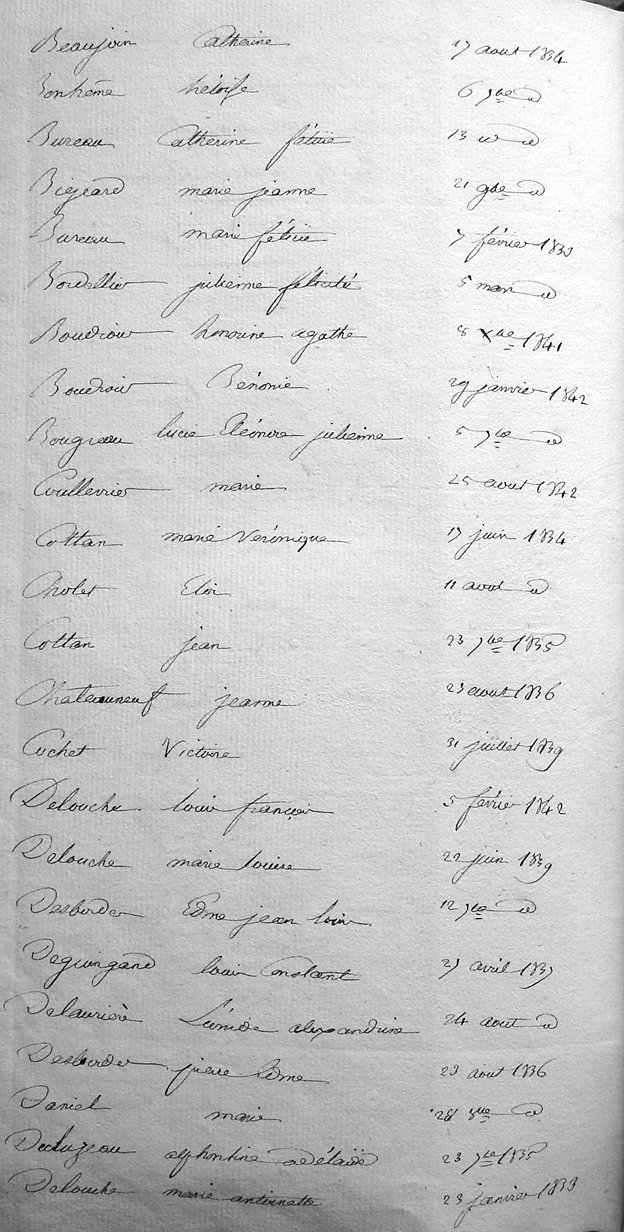 Beaujoin Catherine 17 aout 1834
Bonhême héloïse 6 7bre d
Bureau Catherine félicie 13 d d
Bigeard marie jeanne 21 9bre d
Bureau marie félicie 7 février 1833
Bordillier julienne félicité 5 mars d
Boudroux honorine agathe 8 Xbre 1841
Boudroux Bénonie 29 janvier 1842
Bougreau lucie Eléonore julienne 5 7bre d
Coullevrier marie 25 aout 1842
Cottan marie Véronique 17 juin 1834
Cholet Eloi 11 avril d
Cottan jean 23 7bre 1835
Chateauneuf jeanne 23 aout 1836
Cuchet Victoire 31 juillet 1839
Delouche louis françois 5 février 1842
Delouche marie louise 22 juin 1839
Desbordes Edme jean louis 12 9bre d
Deguingand louis Constant 27 avril 1837
Delaurière alexandrine 24 aout d
Desbordes pierre Edme 23 aout 1836
Daniel marie 28 8bre d
Decluzeau alphonsine adélaïde 23 7bre 1835
Delouche marie antoinette 23 janvier 1833